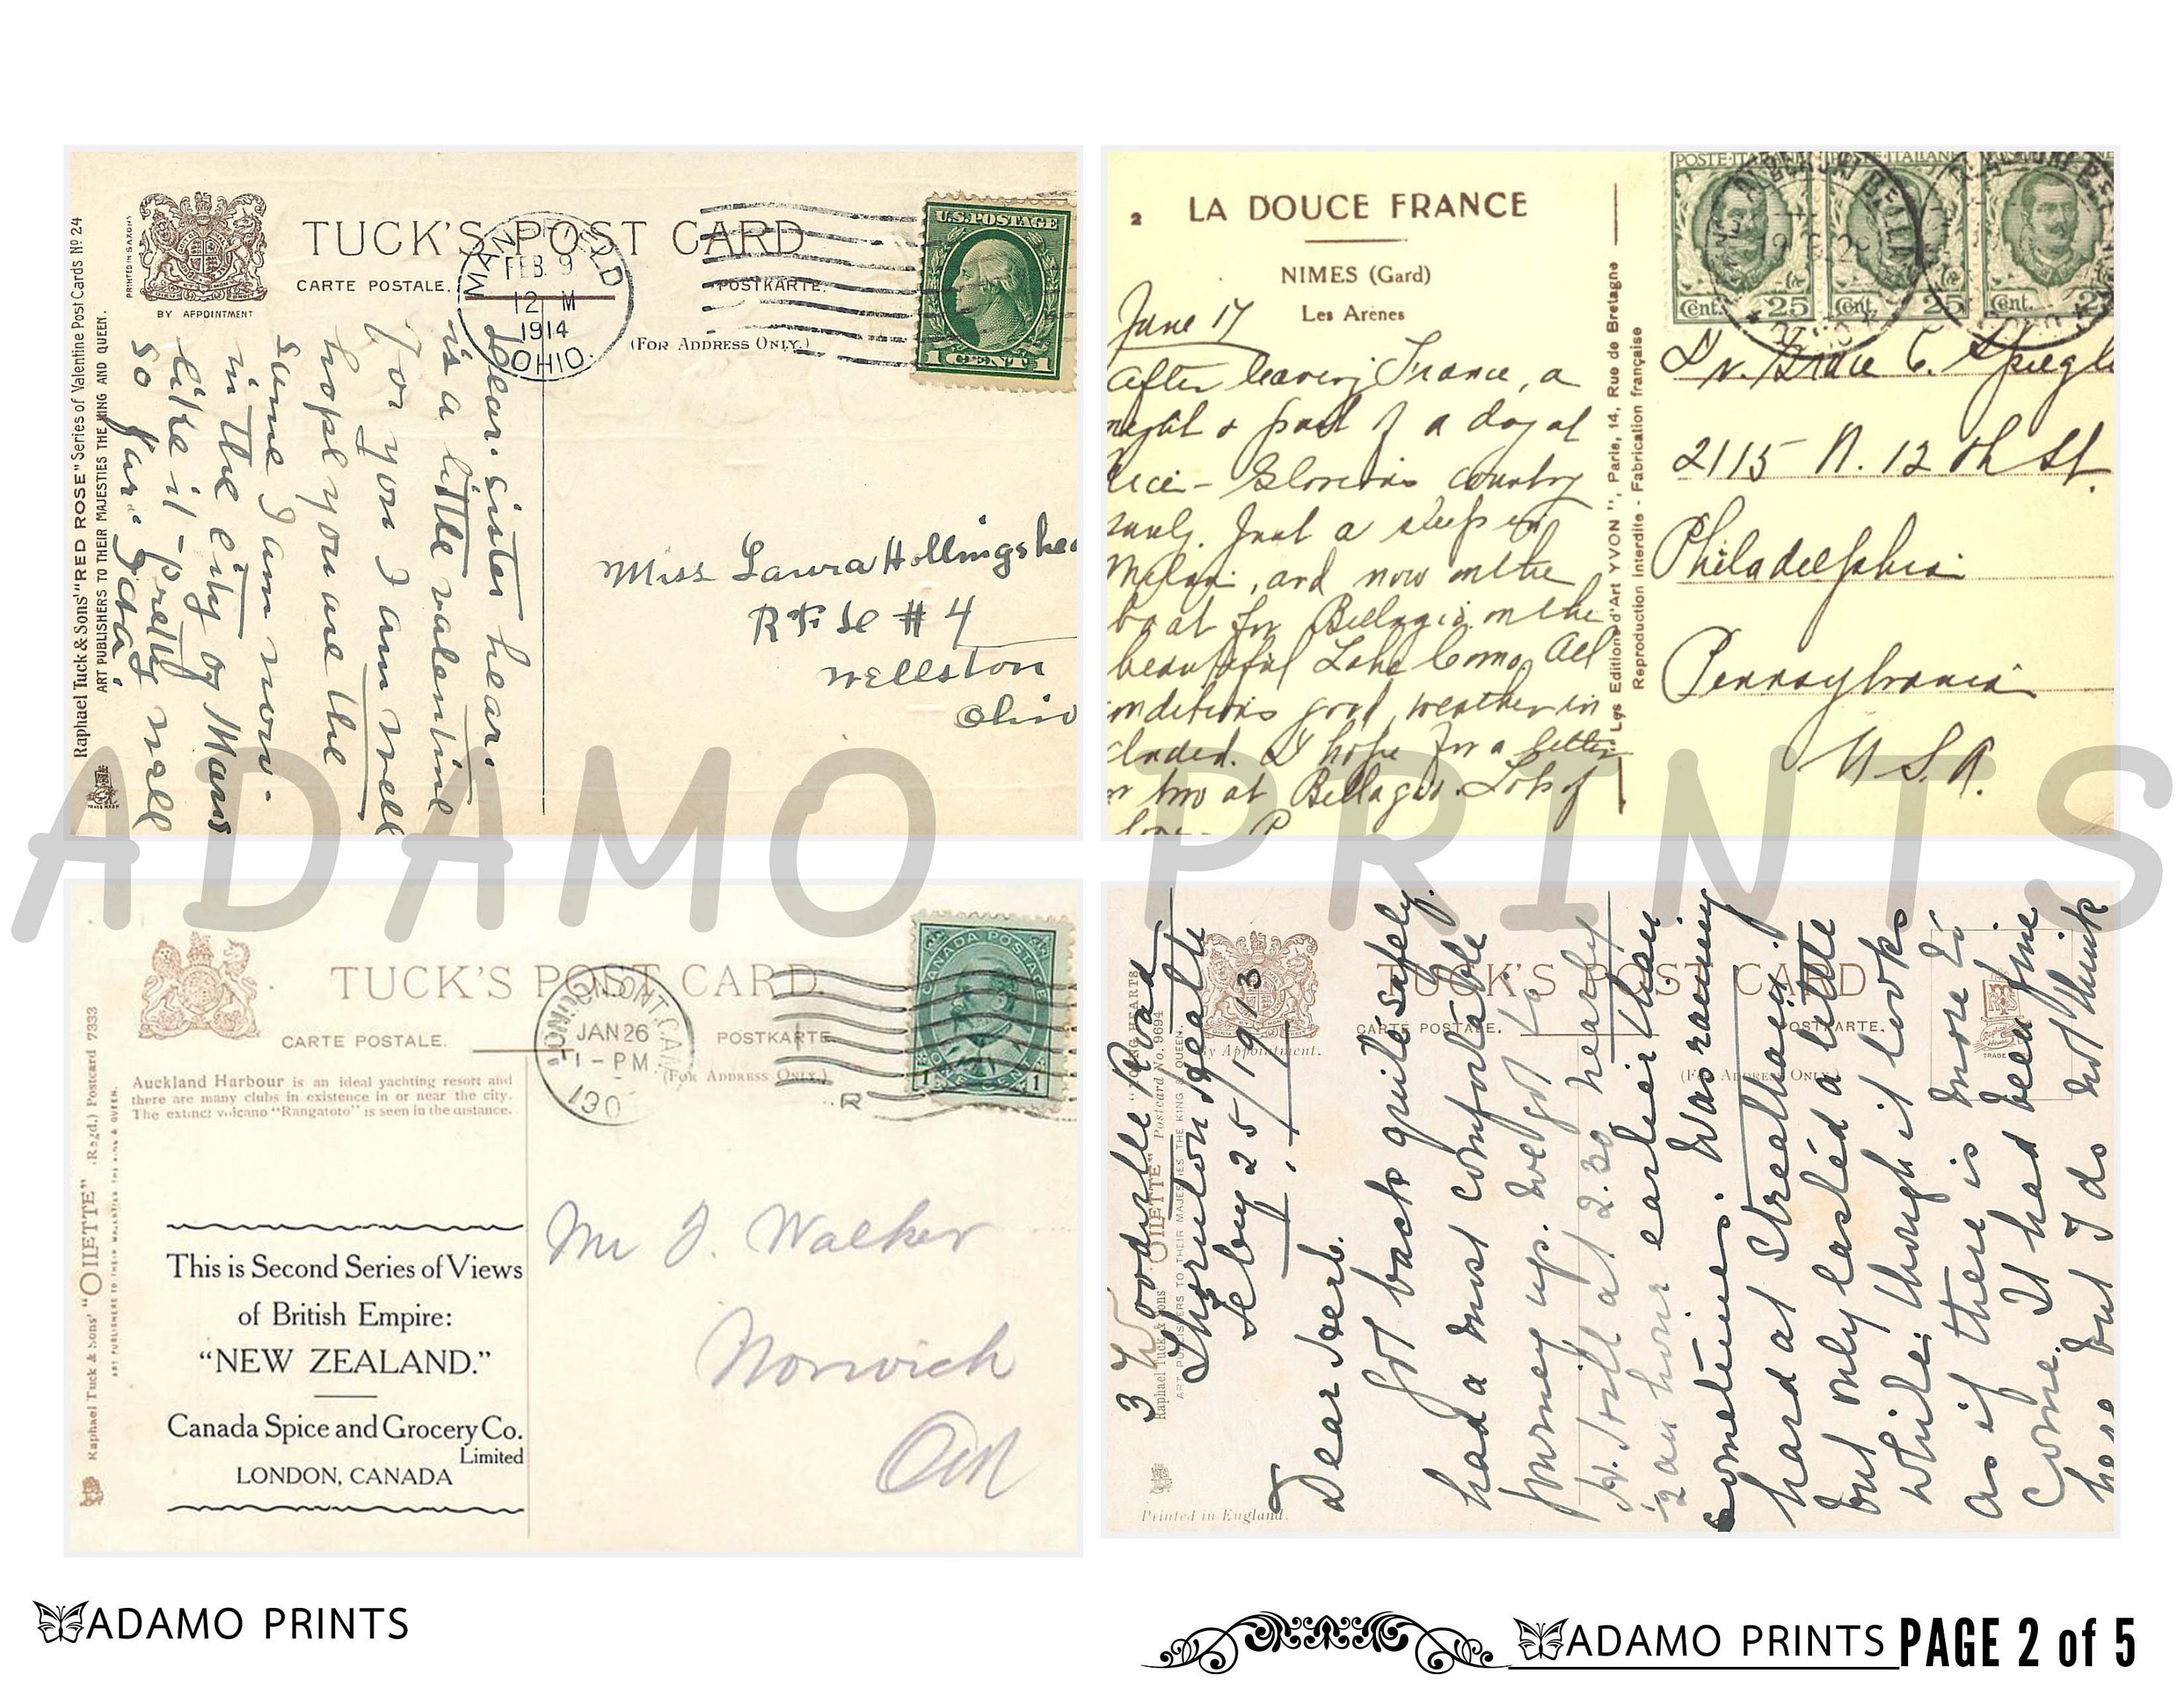 Raphael Tuck & Sons' "RED ROSE" Series of Valentine Post Cards No 24
ART PUBLISHERS TO THEIR MAJESTIES THE KING AND QUEEN.
PRINTED IN SAXONY
BY APPOINTMENT
TUCK'S POST CARD
CARTE POSTALE.
POSTKARTE.
(FOR ADDRESS ONLY.)
MANSFIELD
FEB 9
12 M
1914
OHIO.
U.S. POSTAGE
1 CENT 1
Dear sister hear
is a little valentine
for you I am well
hope you are the
same I am now
in the city of Mans
like it pretty well
so far
Miss Laura Hollingshea
R F D # 4
Wellston
Ohio
2 LA DOUCE FRANCE
NIMES (Gard)
Les Arènes
June 17
After leaving France, a
night & part of a day at
Glorious country
Just a sleep in
Milan, and now on the
boat for Bellagio on the
beautiful Lake Como. All
nditions good, weather in
cluded. I hope for a letter
or two at Bellagio. Lots of
love - P
Les Editions d'Art YVON", Paris, 14, Rue de Bretagne
Reproduction interdite - Fabrication française
POSTE ITALIANE
Cent. 25
Cent. 25
Cent. 2
Dr. Grace C. Spiegl
2115 N. 12th St.
Philadelphia
Pennsylvania
U.S.A.
ADAMO PRINTS
Raphael Tuck & Sons' "OILETTE" (Regd.) Postcard 7333
ART PUBLISHERS TO THEIR MAJESTIES THE KING & QUEEN.
TUCK'S POST CARD.
CARTE POSTALE.
POSTKARTE
(FOR ADDRESS ONLY.)
JAN 26
1 - PM
190
R
CANADA POSTAGE
1 ONE CENT 1
Auckland Harbour is an ideal yachting resort and
there are many clubs in existence in or near the city.
The extinct volcano "Rangatoto" is seen in the distance.
This is Second Series of Views
of British Empire:
"NEW ZEALAND."
Canada Spice and Grocery Co.
Limited
LONDON, CANADA
Mr J. Walker
Norwich
Ont
Raphael Tuck & Sons' "OILETTE" Postcard No. 9694
ART PUBLISHERS TO THEIR MAJESTIES THE KING & QUEEN.
By Appointment.
TUCK'S POST CARD
CARTE POSTALE.
POSTKARTE.
(FOR ADDRESS ONLY.)
TRADE
Printed in England.
3 Woodville Road
Thornton Heath
Feby 25/1913
Dear
Got back quite safely.
had a most comfortable
journey up. We got to
at 2.30 nearly
1/2 an hour earlier than
sometimes. Was raining
hard at Streatham
but only lasted a little
while, though it looks
as if there is more to
come. It had been fine
here but I do not think
ADAMO PRINTS
ADAMO PRINTS PAGE 2 of 5